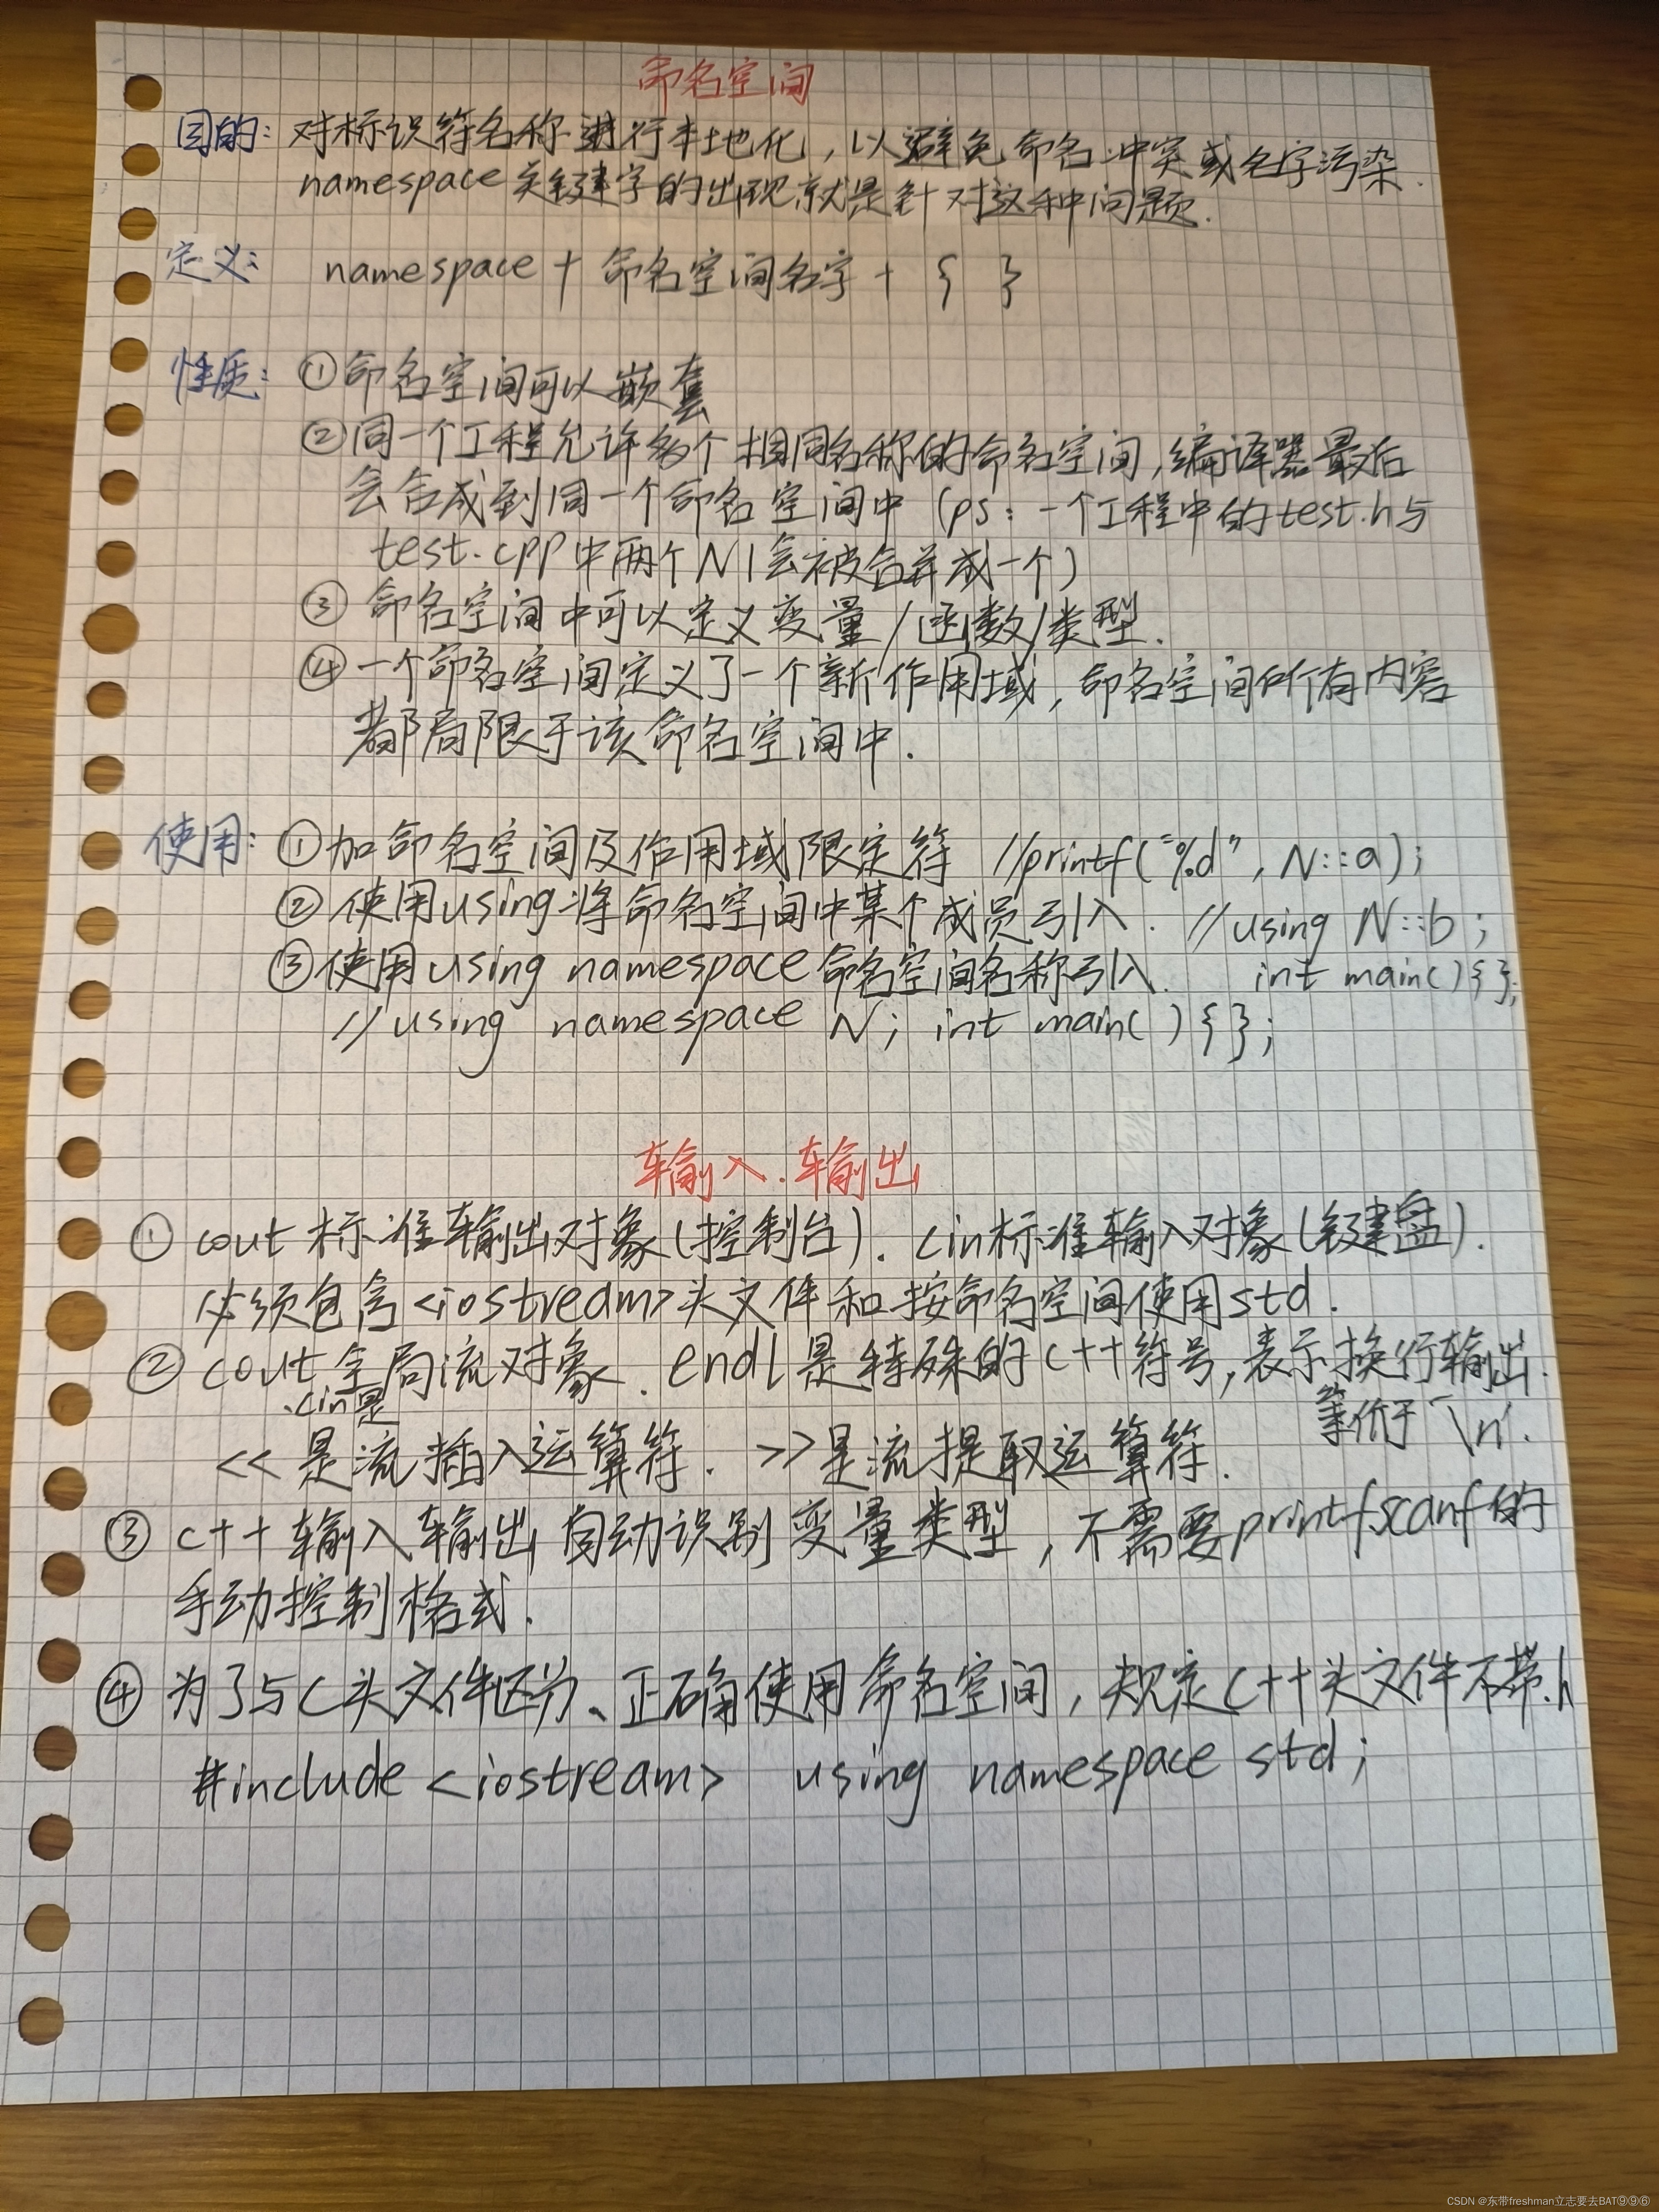 命名空间
目的: 对标识符名称进行本地化, 以避免命名冲突或名字污染.
namespace关键字的出现就是针对这种问题.
定义: namespace + 命名空间名字 + { }
性质: ①命名空间可以嵌套
②同一个工程允许多个相同名称的命名空间,编译器最后
会合成到同一个命名空间中 (ps: 一个工程中的test.h与
test.cpp中两个N1会被合并成一个)
③ 命名空间中可以定义变量/函数/类型.
④一个命名空间定义了一个新作用域, 命名空间所有内容
都局限于该命名空间中.
使用: ①加命名空间及作用域限定符 //printf("%d", N::a);
②使用using将命名空间中某个成员引入. //using N::b;
③使用using namespace命名空间名称引入. int main(){};
//using namespace N; int main( ){};
输入.输出
① cout标准输出对象(控制台). cin标准输入对象(键盘).
必须包含<iostream>头文件和按命名空间使用std.
② cout全局流对象. endl是特殊的C++符号,表示换行输出.
.cin是
等价于'\n'.
<<是流插入运算符. >>是流提取运算符.
③ C++输入输出自动识别变量类型, 不需要printf.scanf的
手动控制格式.
④ 为了与C头文件区分、正确使用命名空间, 规定C++头文件不带.h
#include <iostream> using namespace std;
CSDN @东带freshman立志要去BAT⑨⑨⑥